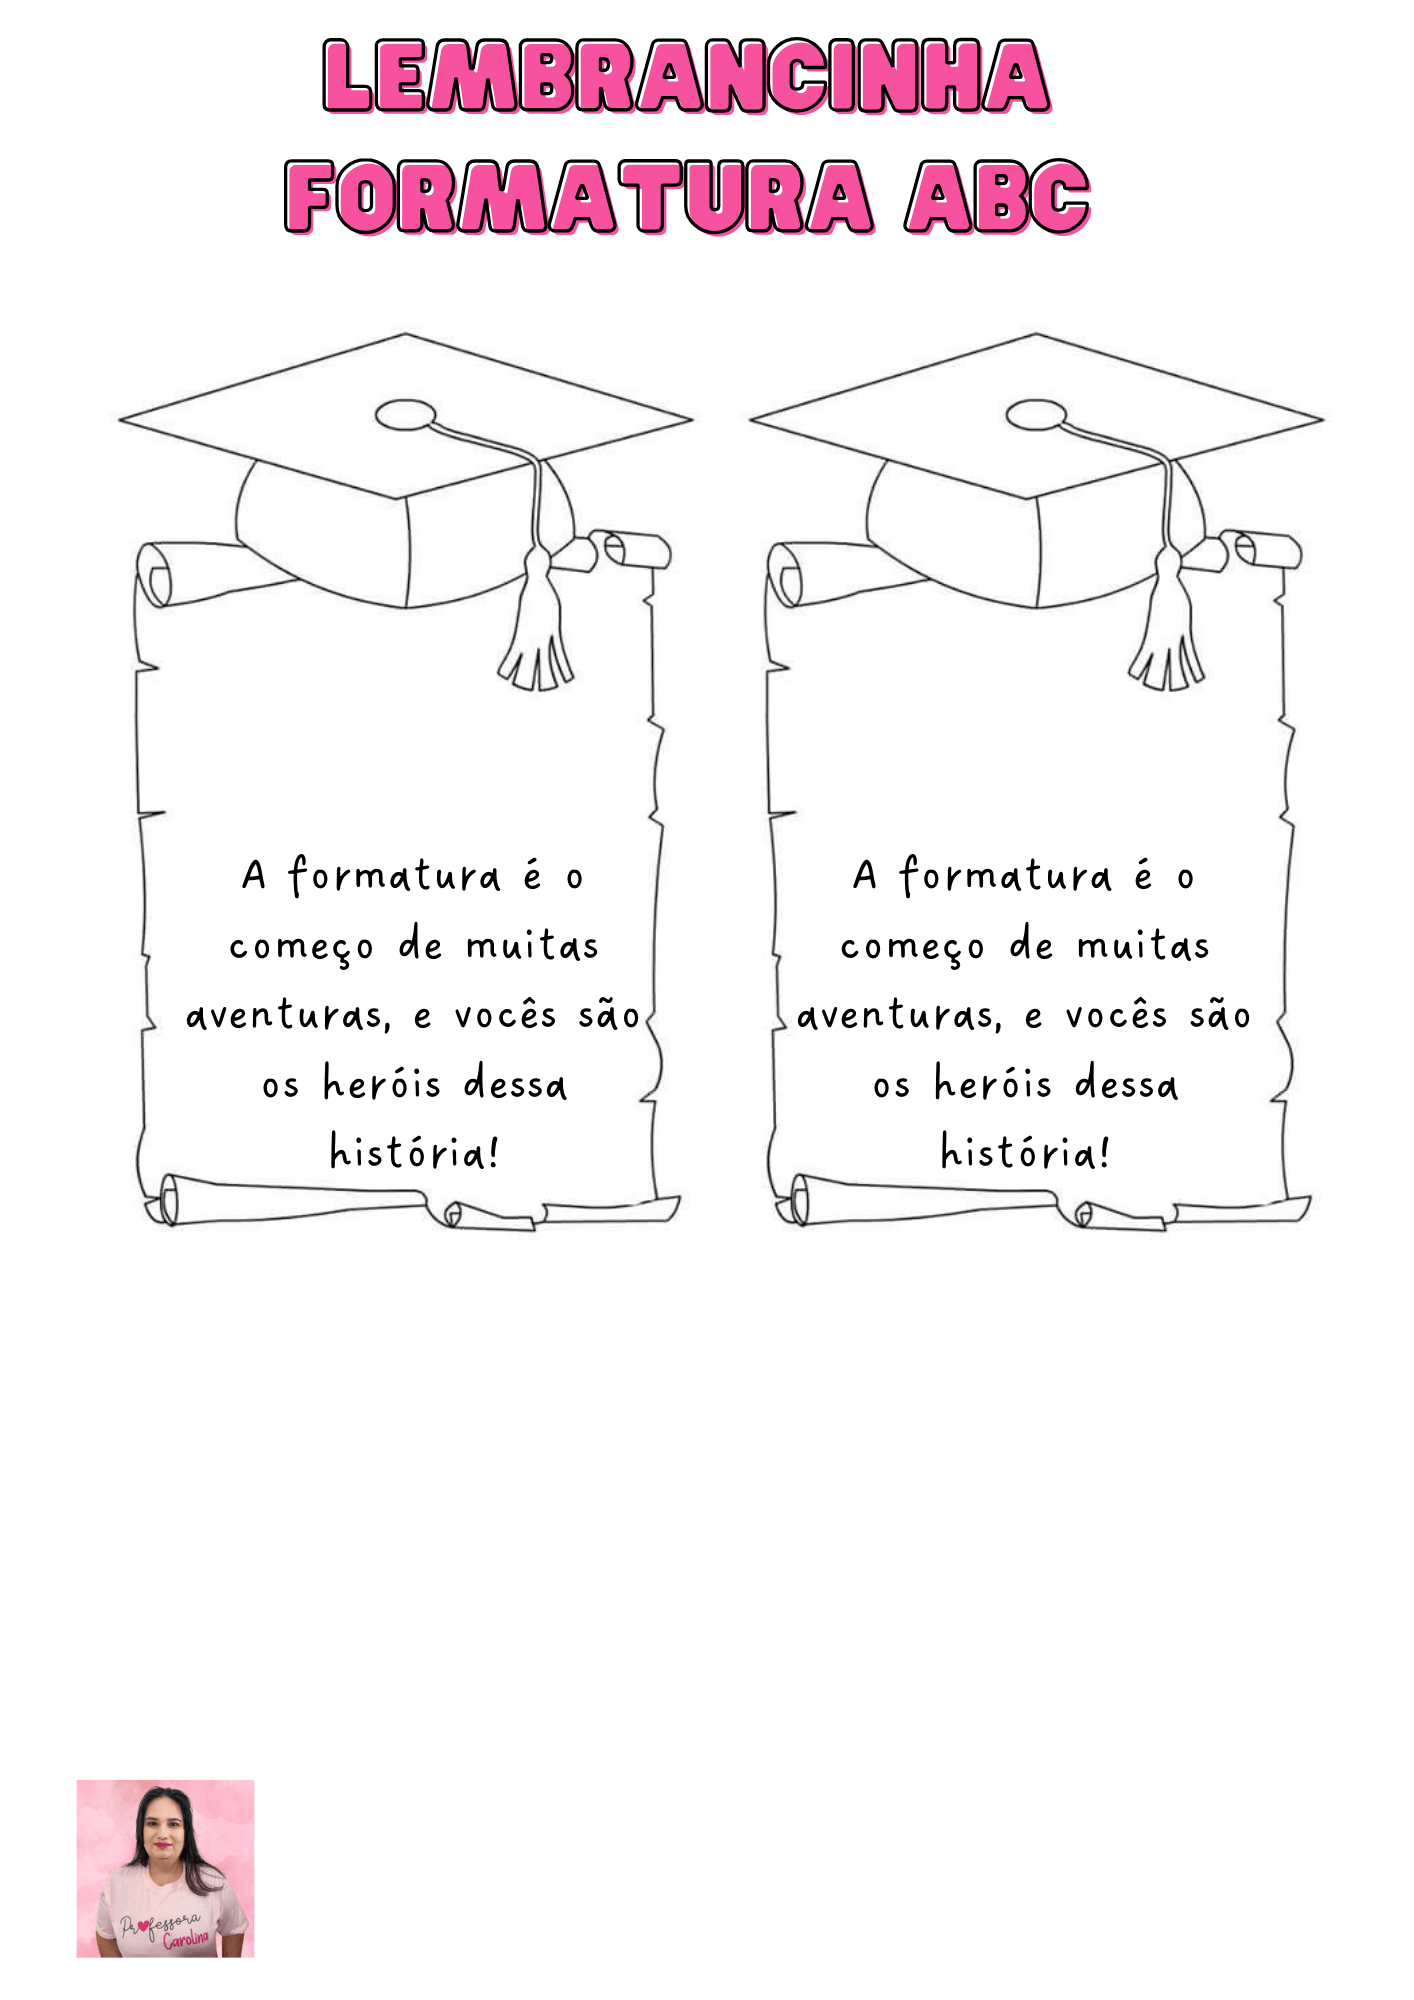 LEMBRANCINHA
FORMATURA ABC
A formatura é o
começo de muitas
aventuras, e vocês são
os heróis dessa
história!
A formatura é o
começo de muitas
aventuras, e vocês são
os heróis dessa
história!
Professora
Carolina